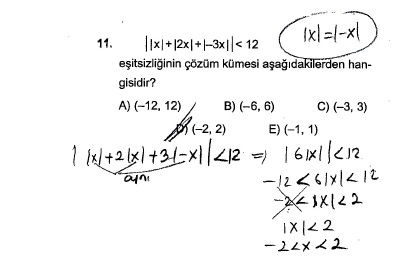 |x|=|-x|
11. ||x|+|2x|+|-3x||< 12
eşitsizliğinin çözüm kümesi aşağıdakilerden han-
gisidir?
A) (–12, 12) B) (–6, 6) C) (–3, 3)
D) (–2, 2) E) (–1, 1)
||x|+2|x|+3|-x||<12 ⇒ |6|x||<12
aynı
-12<6|x|<12
-2<|x|<2
|x|<2
-2<x<2